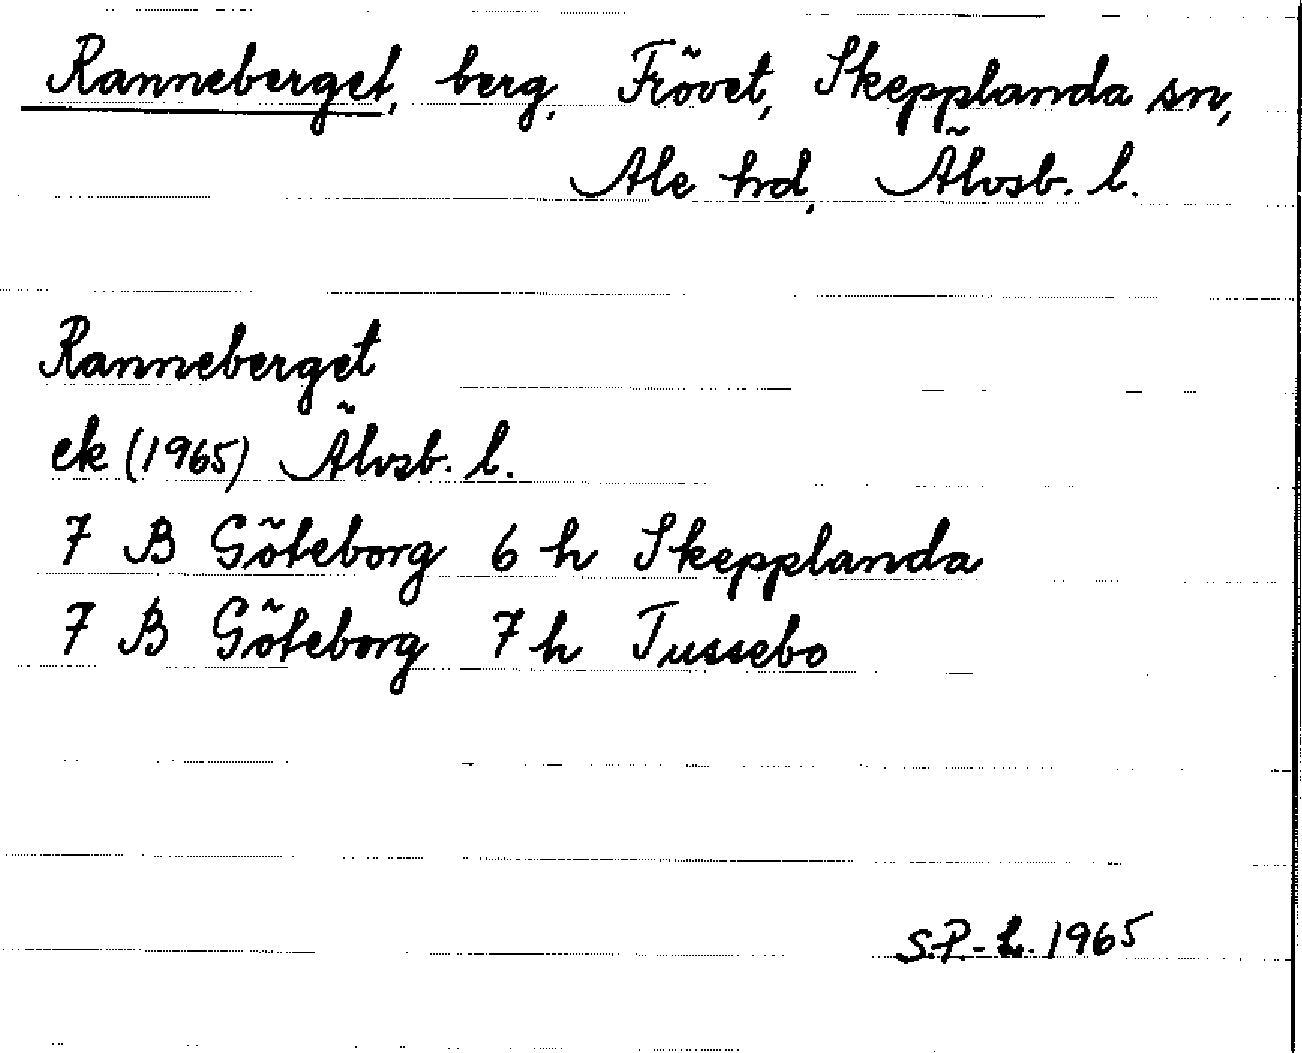 Ranneberget, berg, Frövet, Skepplanda sn,
Ale hd, Älvsb. l.
Ranneberget
ek (1965) Älvsb. l.
7 B Göteborg 6 h Skepplanda
7 B Göteborg 7 h Tussebo
S.P.-L. 1965